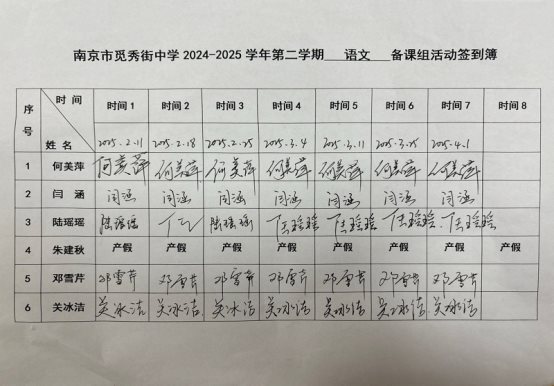 南京市觅秀街中学 2024-2025 学年第二学期 语文 备课组活动签到簿
序号 时间 姓名 时间 1 时间 2 时间 3 时间 4 时间 5 时间 6 时间 7 时间 8
2025.2.11 2025.2.18 2025.2.25 2025.3.4 2025.3.11 2025.3.25 2025.4.1
1 何美萍 何美萍 何美萍 何美萍 何美萍 何美萍 何美萍 何美萍
2 闫涵 闫涵 闫涵 闫涵 闫涵 闫涵 闫涵 闫涵
3 陆瑶瑶 陆瑶瑶 陆瑶瑶 陆瑶瑶 陆瑶瑶 陆瑶瑶 陆瑶瑶
4 朱建秋 产假 产假 产假 产假 产假 产假 产假 产假
5 邓雪芹 邓雪芹 邓雪芹 邓雪芹 邓雪芹 邓雪芹 邓雪芹 邓雪芹
6 关冰洁 关冰洁 关冰洁 关冰洁 关冰洁 关冰洁 关冰洁 关冰洁